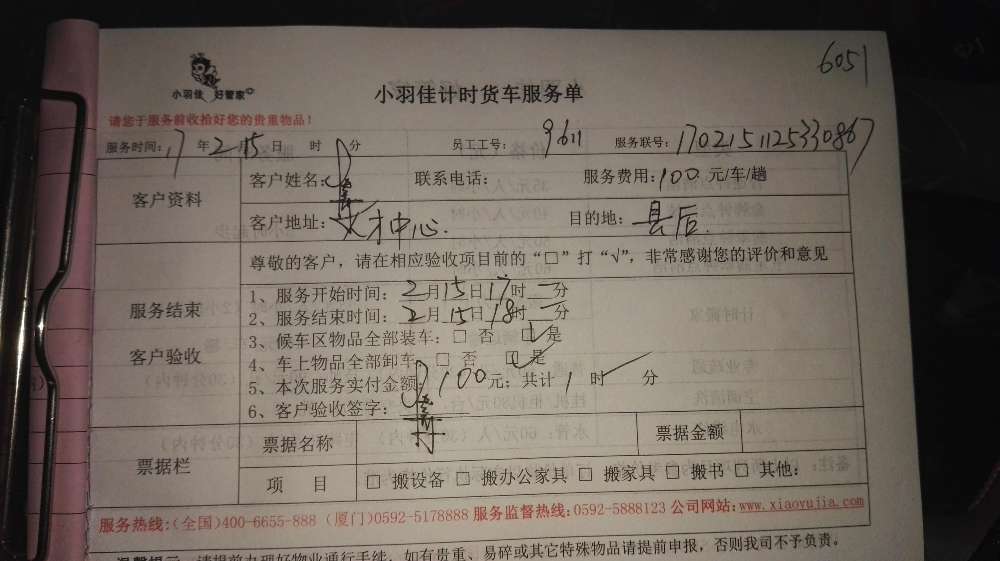 6051
小羽佳 好管家
小羽佳计时货车服务单
请您于服务前收拾好您的贵重物品！
服务时间：17年2月15日 时 分 员工工号：9611 服务联号：1702151125330867
客户资料
客户姓名： 联系电话： 服务费用：100元/车/趟
客户地址：人才中心 目的地：县后
服务结束
客户验收
尊敬的客户，请在相应验收项目前的“□”打“√”，非常感谢您的评价和意见
1、服务开始时间：2月15日17时一分
2、服务结束时间：2月15日18时一分
3、候车区物品全部装车：□ 否 ☑ 是
4、车上物品全部卸车：□ 否 ☑ 是
5、本次服务实付金额：100元；共计1时 分
6、客户验收签字：
票据栏
票据名称 票据金额
项 目 □ 搬设备 □ 搬办公家具 □ 搬家具 □ 搬书 □ 其他：
服务热线：(全国)400-6655-888 (厦门)0592-5178888 服务监督热线：0592-5888123 公司网站：www.xiaoyujia.com
温馨提示：请提前办理好物业通行手续，如有贵重、易碎或其它特殊物品请提前申报，否则我司不予负责。